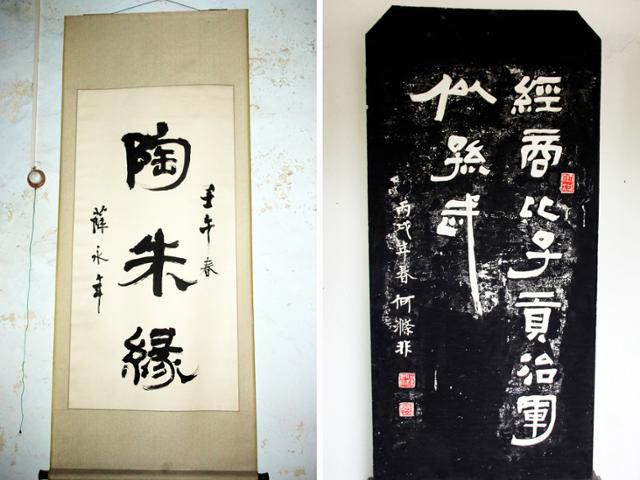 陶朱緣
壬午春
薛永年
經商比子貢治軍
似孫武
丙卯年春何滌非